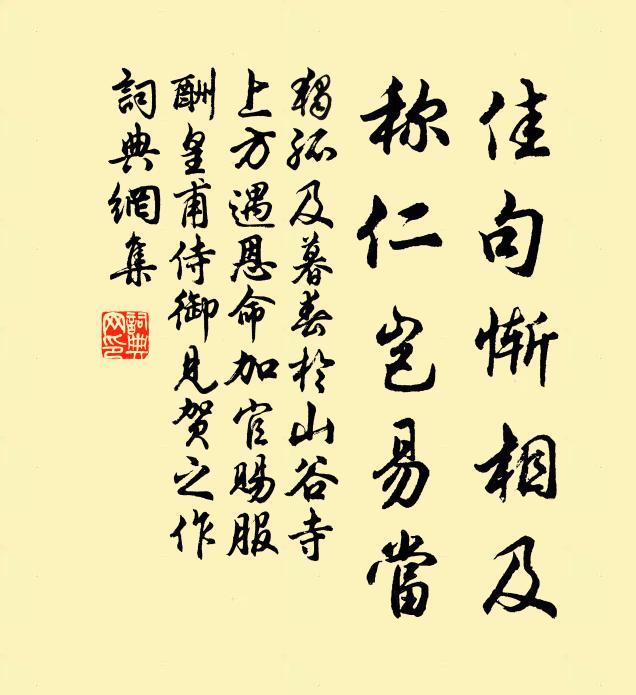 佳句惭相及
称仁岂易當
独孤及暮春於山谷寺
上方遇恩命加官賜服
酬皇甫侍御見贺之作
詞典網集
詞典
网印